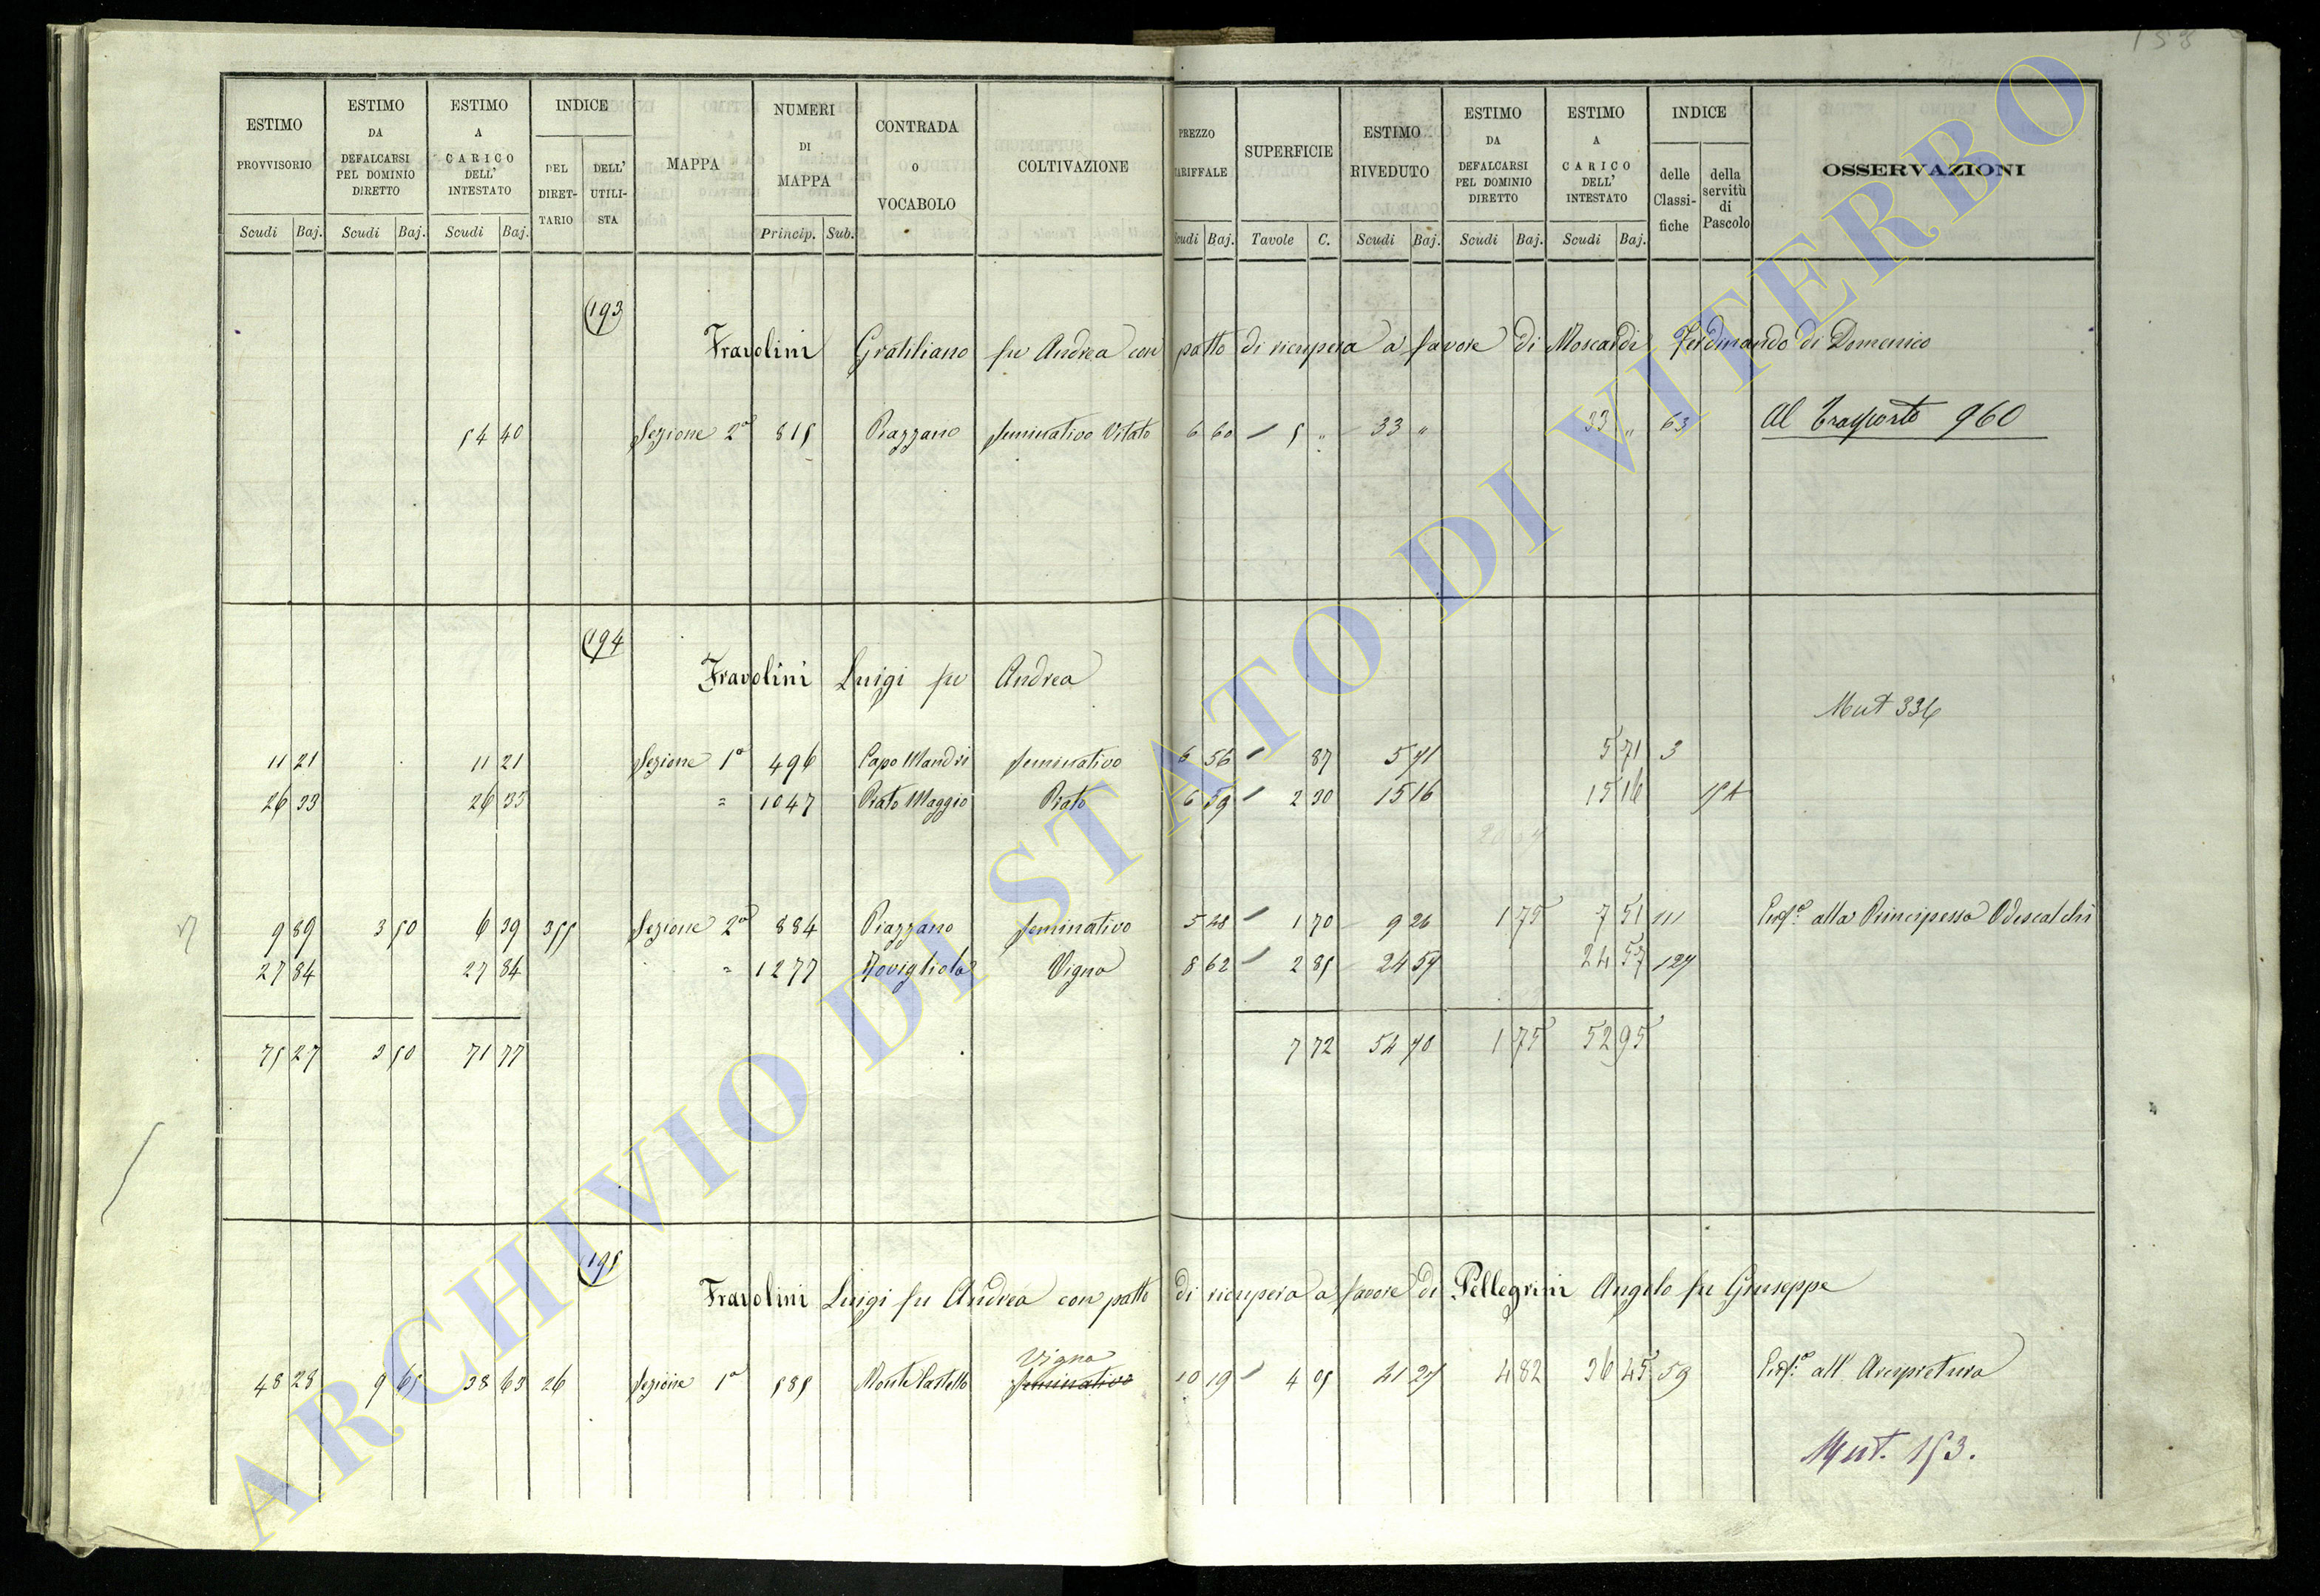 158
ESTIMO PROVVISORIO
ESTIMO DA DEFALCARSI PEL DOMINIO DIRETTO
ESTIMO A CARICO DELL' INTESTATO
INDICE
DEL DIRETTARIO
DELL' UTILISTA
MAPPA
NUMERI DI MAPPA
CONTRADA o VOCABOLO
COLTIVAZIONE
PREZZO TARIFFALE
SUPERFICIE
ESTIMO RIVEDUTO
ESTIMO DA DEFALCARSI PEL DOMINIO DIRETTO
ESTIMO A CARICO DELL' INTESTATO
INDICE
delle Classifiche
della servitù di Pascolo
OSSERVAZIONI
Scudi Baj. Scudi Baj. Scudi Baj. Princip. Sub. Scudi Baj. Tavole C. Scudi Baj. Scudi Baj. Scudi Baj.
193
Fravolini Gratiliano fu Andrea con patto di ricupera a favore di Moscardi Ferdinando di Domenico
54 40 Sezione 2a 815 Piazzano seminativo Vitato 6 60 5 „ 33 „ 33 „ 63 Al Trasporto 960
194
Fravolini Luigi fu Andrea
Mut 336
11 21 11 21 Sezione 1a 496 Capo Mandri seminativo 6 56 87 5 71 5 71 3
26 33 26 33 = 1047 Prato Maggio Prato 6 59 2 30 15 16 15 16
9 89 3 50 6 39 355 Sezione 2a 884 Piazzano seminativo 5 48 1 70 9 26 1 75 7 51 111 Enfa alla Principessa Odescalchi
27 84 27 84 = 1277 Rovigliola Vigna 8 62 2 85 24 57 24 57 127
75 27 3 50 71 77 7 72 54 70 1 75 52 95
195
Fravolini Luigi fu Andrea con patto di ricupera a favore di Pellegrini Angelo fu Giuseppe
Vigna
48 28 9 65 38 63 26 Sezione 1a 585 Monte Castello seminativo 10 19 4 05 41 27 4 82 36 45 59 Enfa all' Arcipretura
Mut. 153.
ARCHIVIO DI STATO DI VITERBO